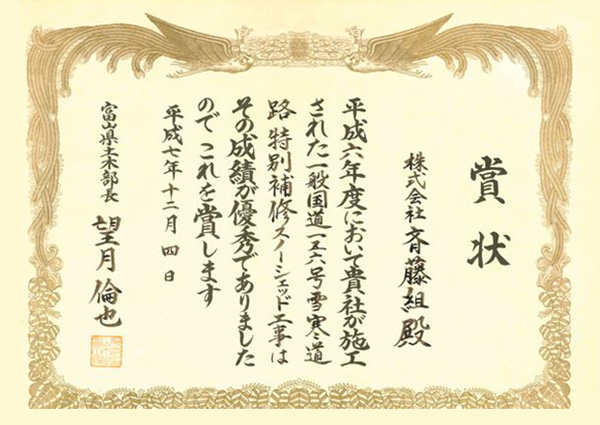 賞状
株式会社 斉藤組殿
平成六年度において貴社が施工
された一般国道一五六号雪寒道
路特別補修スノーシェッド工事は
その成績が優秀でありました
のでこれを賞します
平成七年十二月四日
富山県土木部長 望月倫也